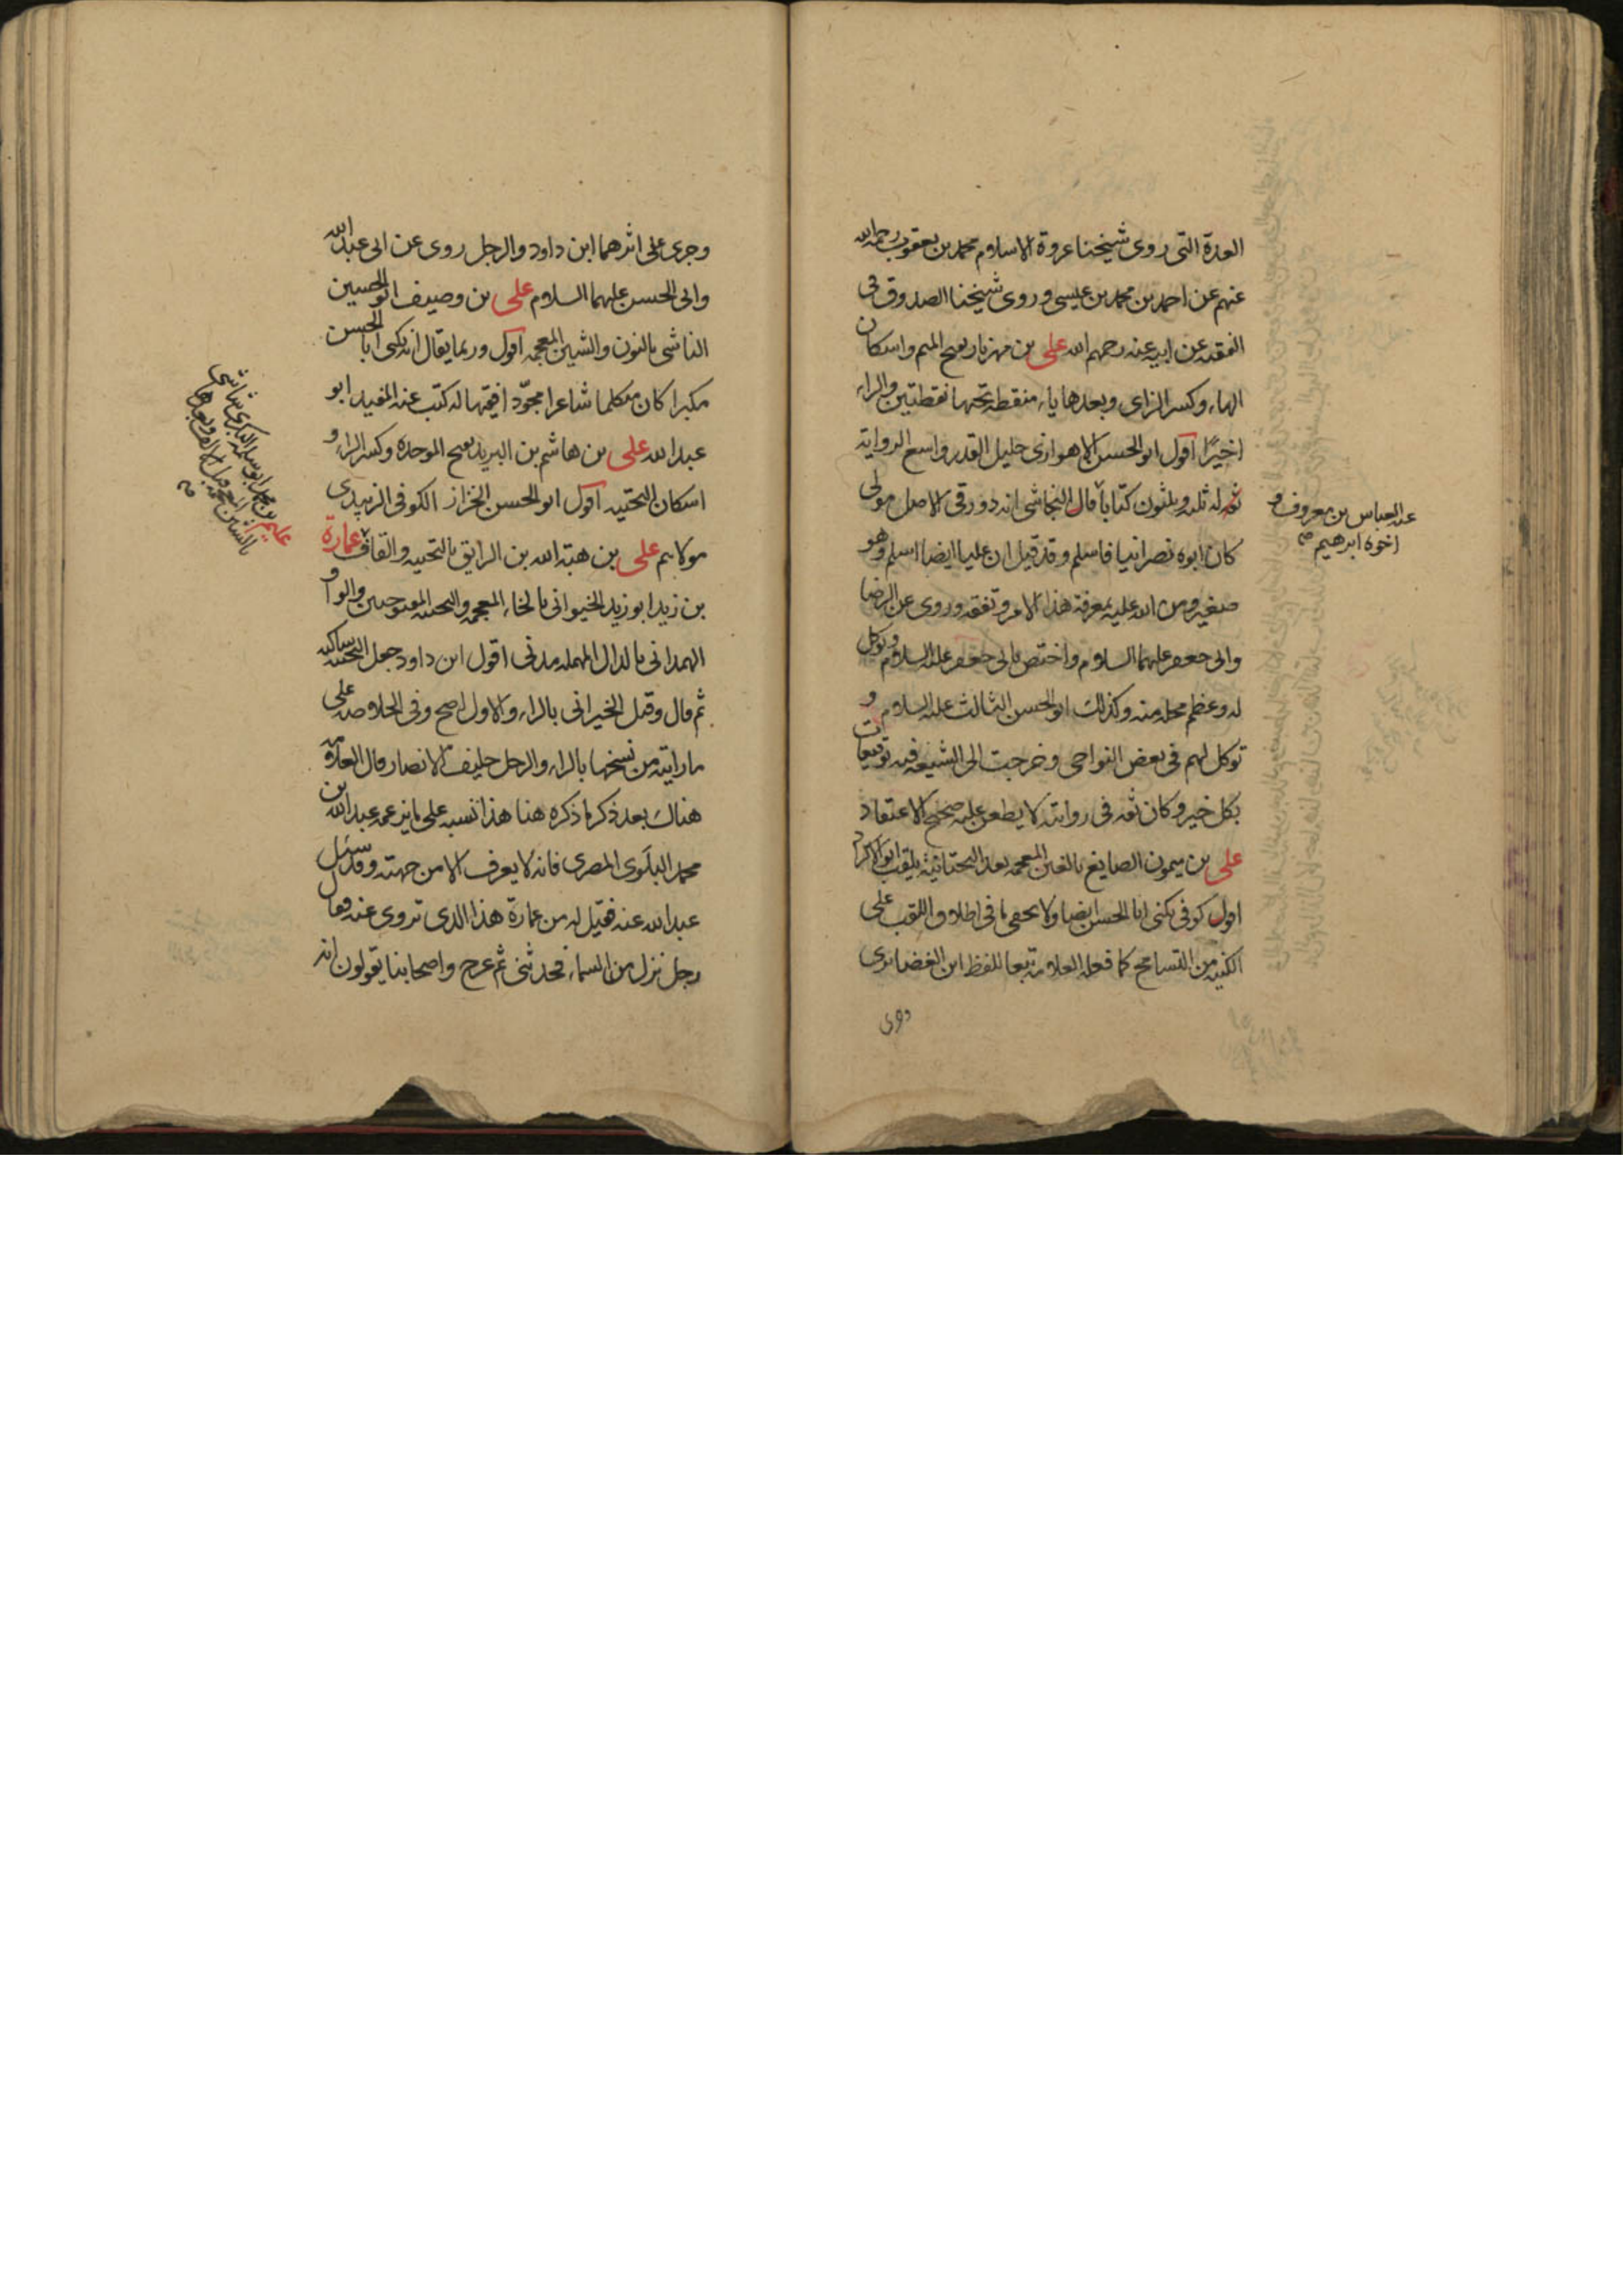 العدة التى روى شيخنا عروة الاسلام محمد بن يعقوب رحمه الله
عنهم عن احمد بن محمد بن عيسى و روى شيخنا الصدوق فى
الفقيه عن ابيه عنه رحمهم الله على بن مهزيار بفتح الميم واسكان
الهاء وكسر الزاى وبعدها ياء منقطة تحتها نقطتين والراء
اخيرًا اقول ابو الحسن الاهوازى جليل القدر واسع الرواية
ثقه له ثلثه وثلثون كتابا قال النجاشى انه دورقى الاصل مولى
كان ابوه نصرانيا فاسلم وقد قيل ان عليا ايضا اسلم وهو
صغير ومن الله عليه بمعرفة هذا الامر وتفقه وروى عن الرضا
وابى جعفر عليهما السلام واختص بابى جعفر عليه السلام وتوكل
له وعظم محله منه وكذلك ابو الحسن الثالث عليه السلام و
توكل لهم فى بعض النواحى وخرجت الى الشيعة فيه توقيعات
بكل خير وكان ثقه فى روايته لا يطعن عليه صحيح الاعتقاد
على بن ميمون الصايغ بالغين المعجمه بعد التحتانية يلقب ابو الاكراد
اقول كوفى يكنى ابا الحسن ايضا ولا يخفى ما فى اطلاق اللقب على
الكنيه من التسامح كما فعله العلامه تبعا للفظ ابن الغضائرى
عنه العباس بن معروف و
اخوه ابرهيم صح
وجرى على اثرهما ابن داود والرجل روى عن ابى عبد الله
وابى الحسن عليهما السلام على بن وصيف ابو الحسين
الناشى بالنون والشين المعجمه اقول وربما يقال انه يكنى ابا الحسن
مكبرا كان متكلما شاعرا مجوّدا فقيها له كتب عنه المفيد ابو
عبد الله على بن هاشم بن البريد بفتح الموحده وكسر الراء و
اسكان التحتيه اقول ابو الحسن الخزاز الكوفى الزبيدى
مولاهم على بن هبة الله بن الرايق بالتحتيه والقاف عمارة
بن زيد ابو زيد الخيوانى بالخاء المعجمه والتحتيه المفتوحتين والواو
الهمدانى بالدال المهمله مدنى اقول ابن داود جعل التحتيه ساكنه
ثم قال وقيل الخيرانى بالراء والاول اصح وفى الخلاصه على
ما رايته من نسخها بالراء والرجل حليف الانصار قال العلامه
هناك بعد ذكر ما ذكره هنا هذا نسبه على ما يزعمه عبد الله بن
محمد البلوى المصرى فانه لا يعرف الا من جهته وقد سئل
عبد الله عنه فقيل له من عمارة هذا الذى تروى عنه فقال
رجل نزل من السماء فحدثنى ثم عرج واصحابنا يقولون انه
عليم بن محمد ابو سلمة البكرى شاشى